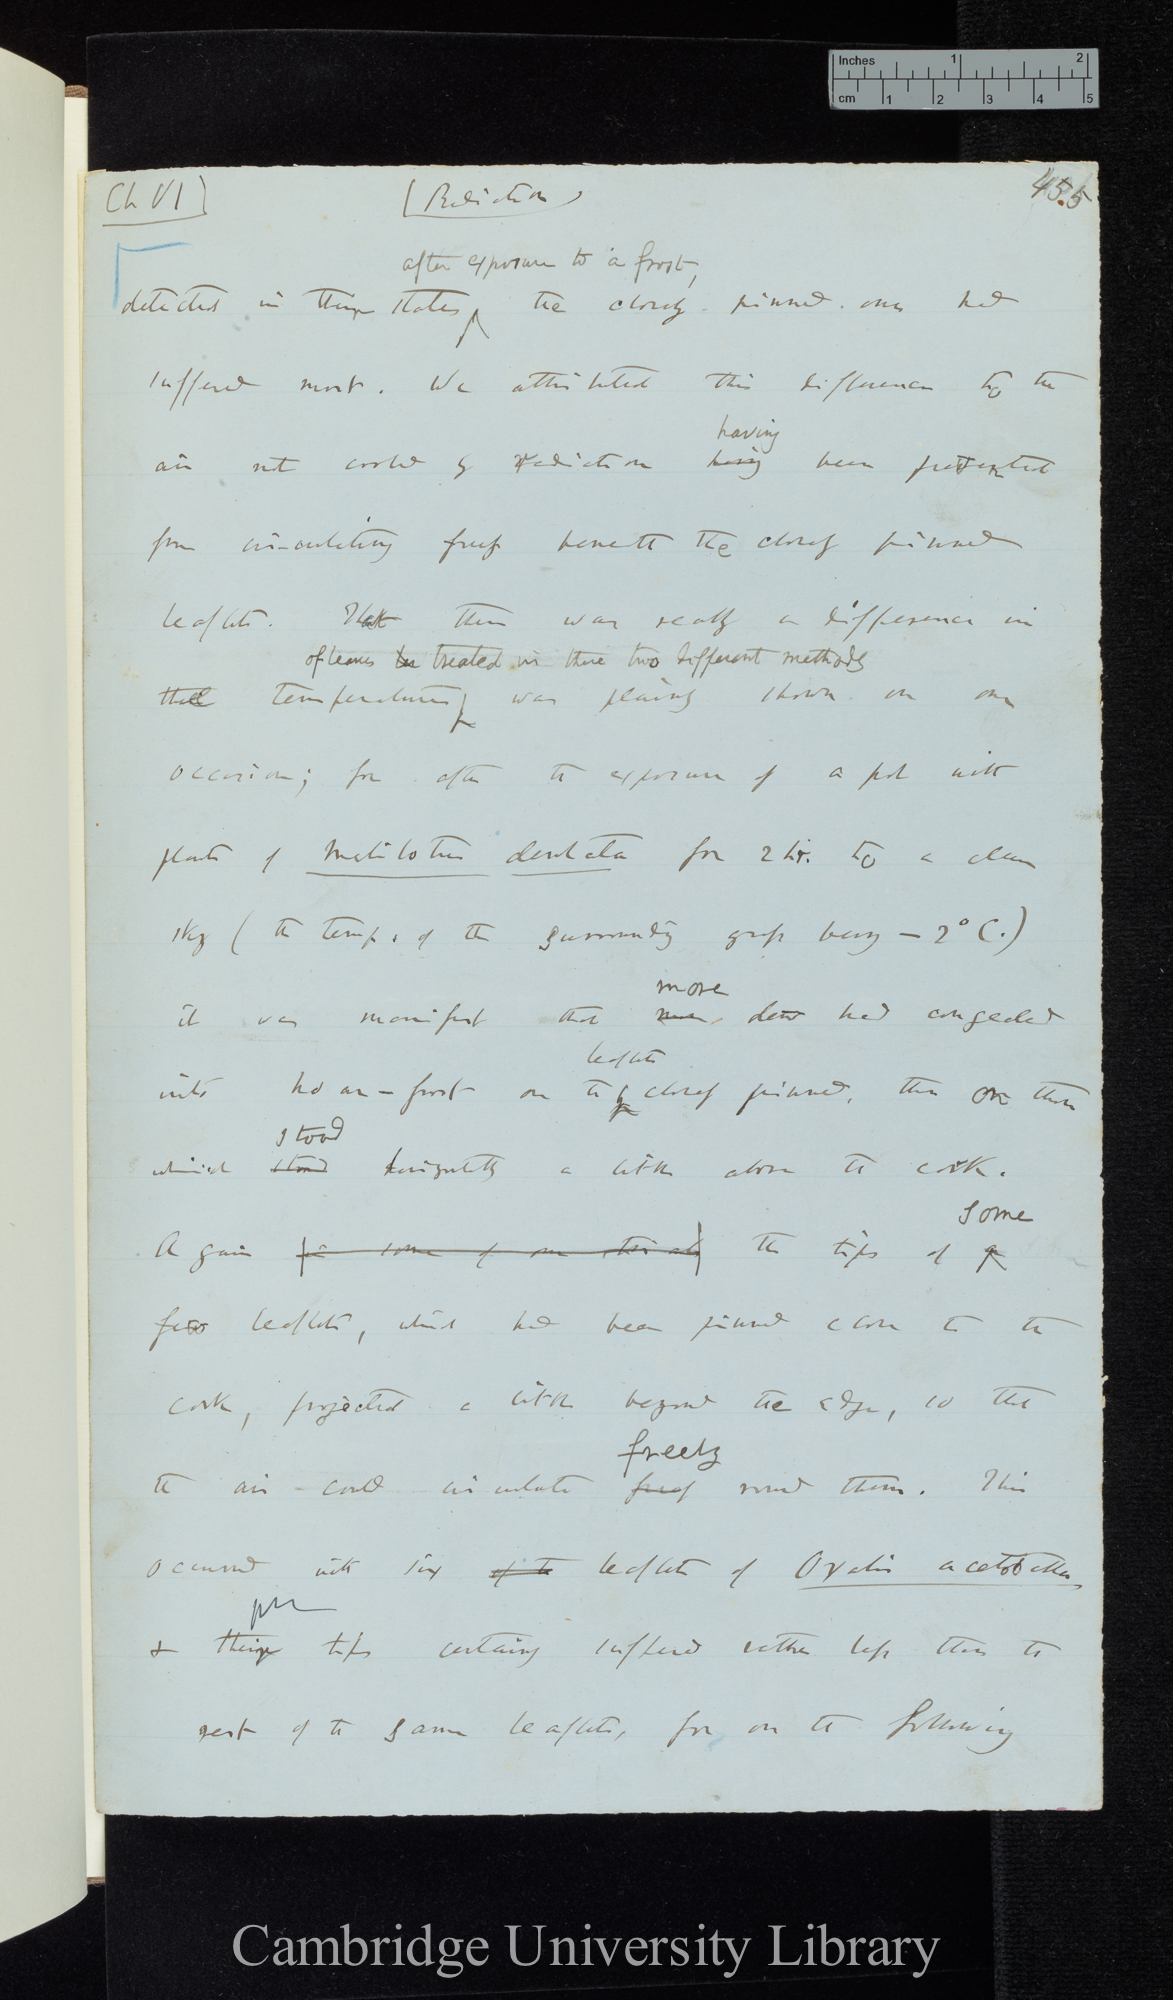 Inches 1 2
cm 1 2 3 4 5
Ch VI]
[Radiation]
455
after exposure to a frost,
detected in their states, the closely pinned ones had
suffered most. We attributed this difference to the
having
air not cooled by radiation having been prevented
from circulating freely beneath the closely pinned
leaflets. That there was really a difference in
of leaves treated in these two different methods
the temperature was plainly shown on one
occasion; for after the exposure of a pot with
plants of Melilotus dentata for 2 hr. to a clear
sky (the temp. of the surrounding grass being -2° C.)
more
it was manifest that more dew had congealed
leaflets
into hoar-frost on the closely pinned, than on those
stood
which stood horizontally a little above the cork.
some
Again in some of our trials the tips of a
few leaflets, which had been pinned close to the
cork, projected a little beyond the edge, so that
freely
the air could circulate freely round them. This
occurred with six of the leaflets of Oxalis acetosella,
& their tips certainly suffered rather less than the
rest of the same leaflets, for on the following
Cambridge University Library